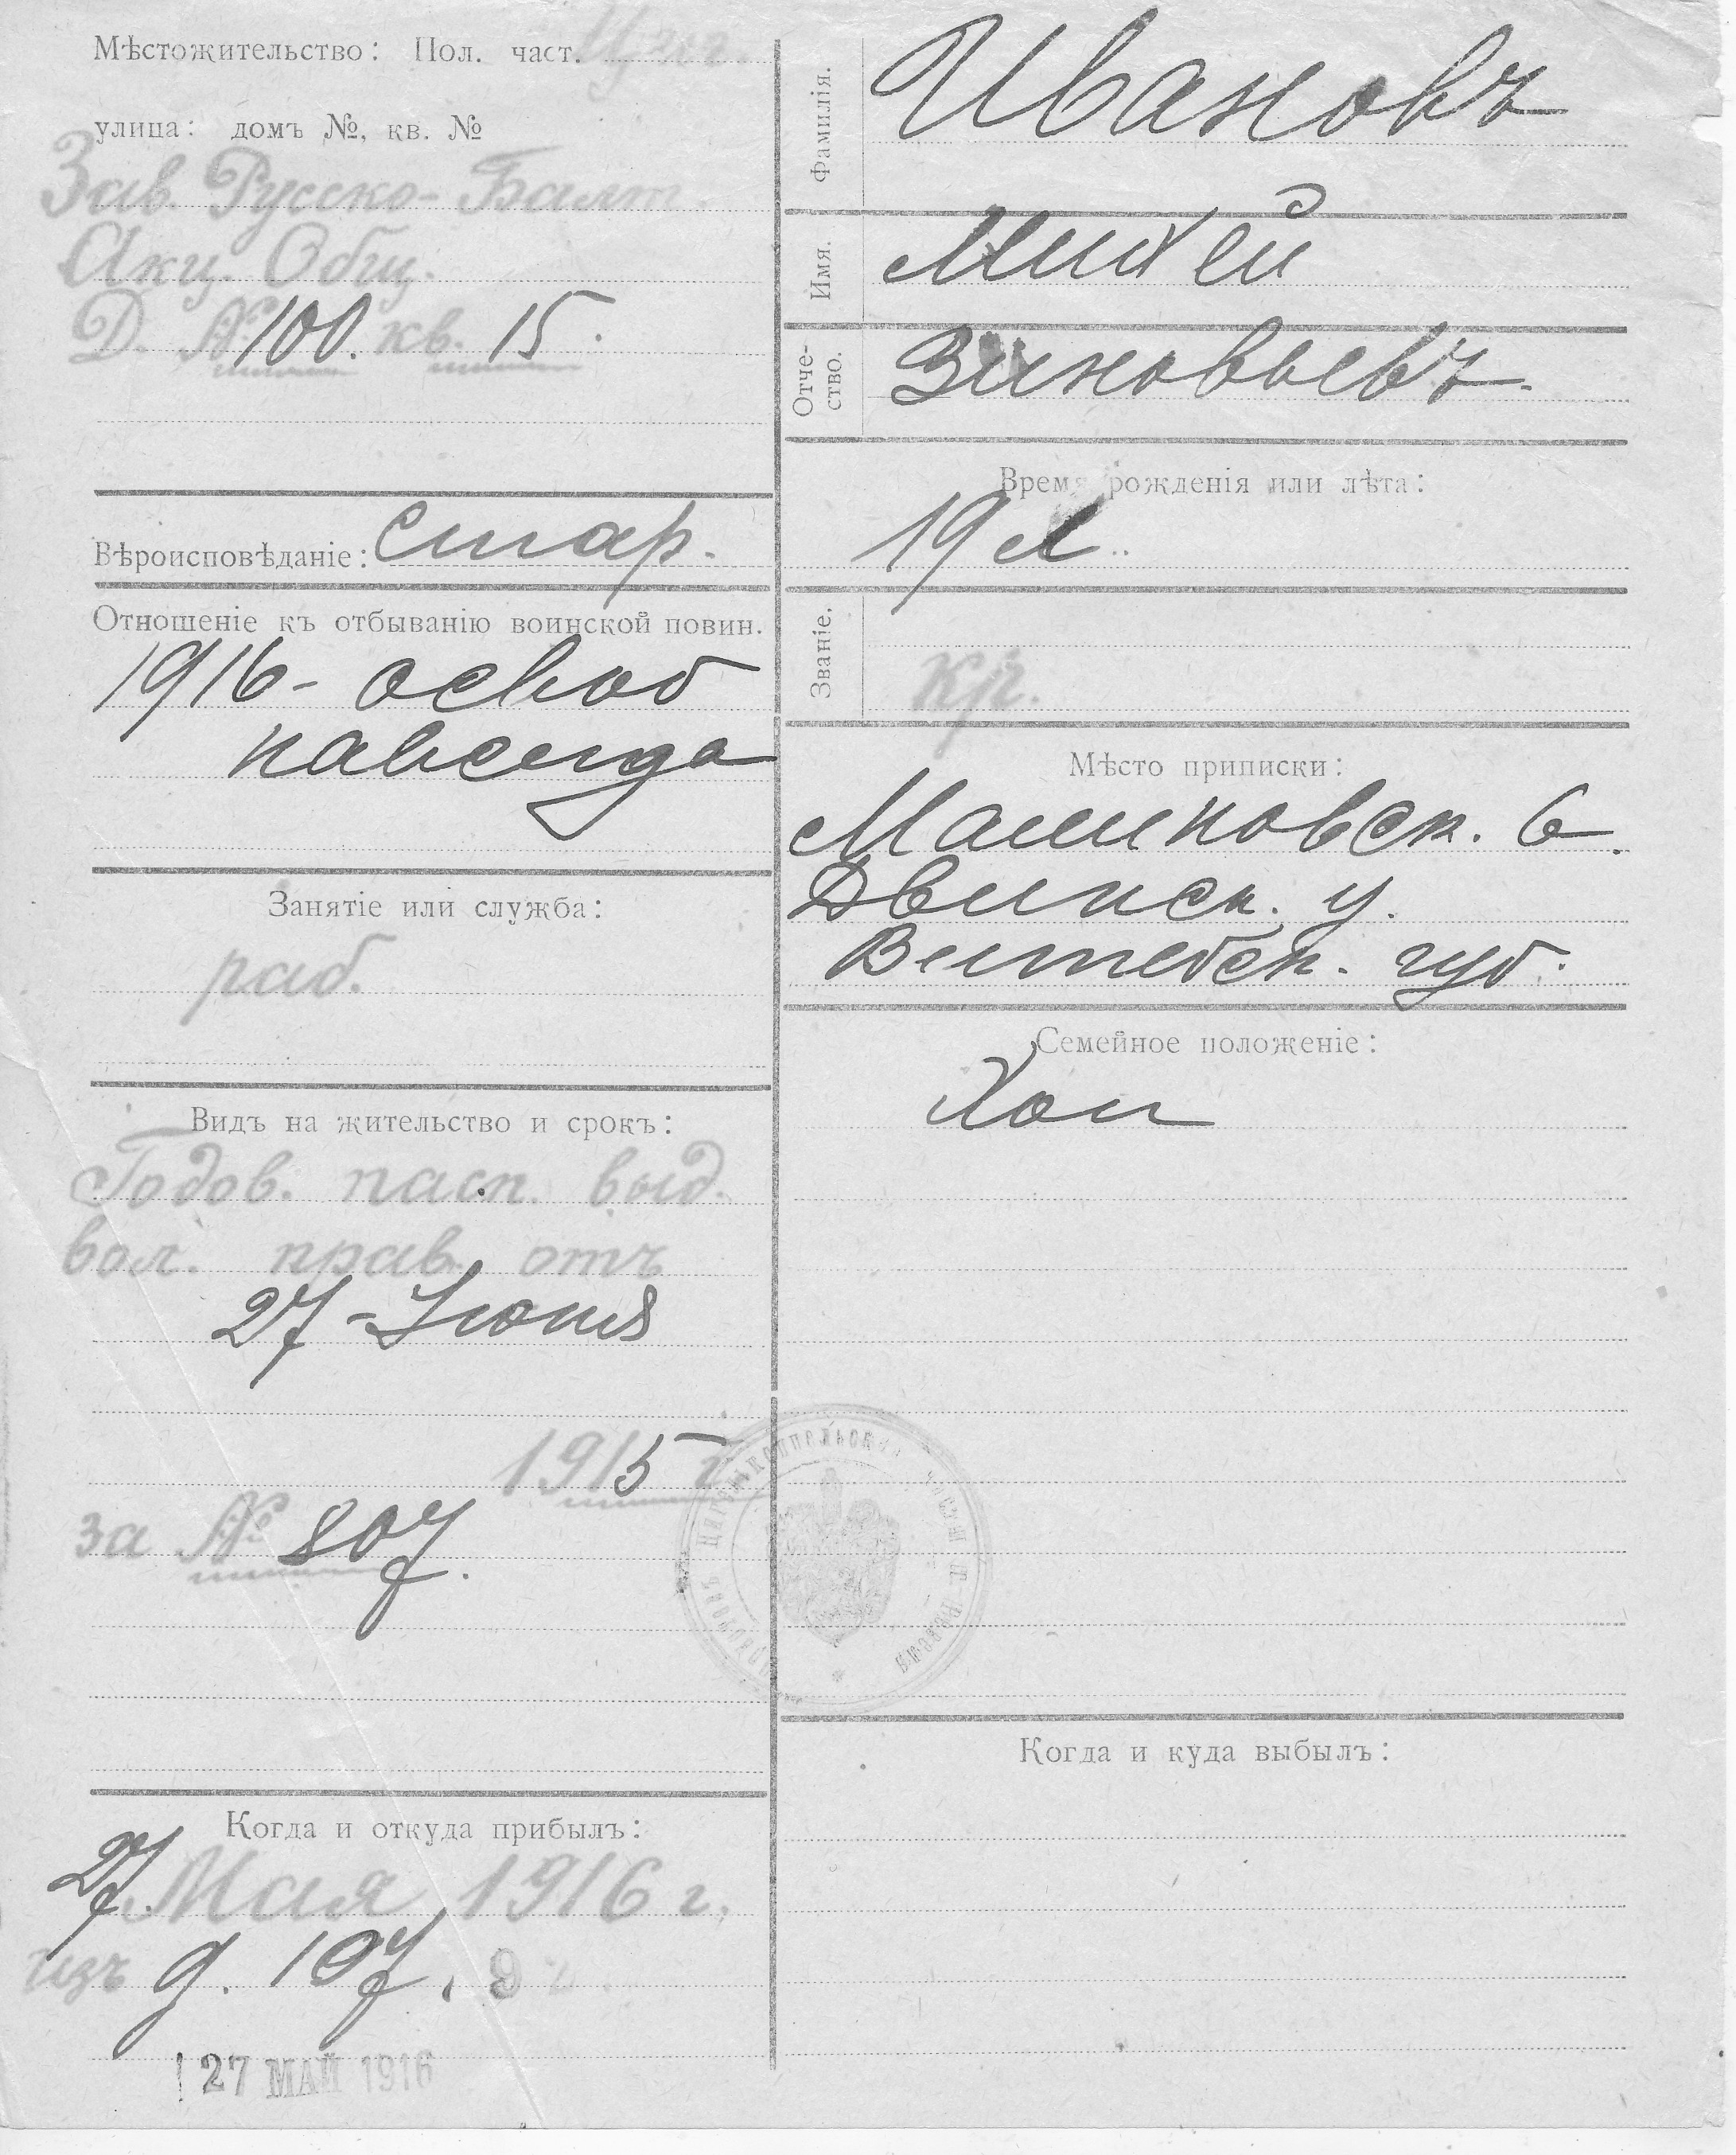 Мѣстожительство: Пол. част.
улица: домъ №, кв. №
Зав. Русско-Балт.
Акц. Общ.
Д. № 100. кв. 15.
Вѣроисповѣданіе: стар.
Отношеніе къ отбыванію воинской повин.
1916 - освоб
навсегда
Занятіе или служба:
раб.
Видъ на жительство и срокъ:
Годов. пасп. выд.
вол. прав. отъ
27 - Июня
1915 г.
за № 807.
Когда и откуда прибылъ:
27. Мая 1916 г.
изъ д. 107,
27 МАЙ 1916
Фамилія. Ивановъ
Имя. Михей
Отче-
ство. Зиновьевъ.
Время рожденія или лѣта:
19 л.
Званіе.
кр.
Мѣсто приписки:
Малиновск. в.
Двинск. у.
Витебск. губ.
Семейное положеніе:
Хол
Когда и куда выбылъ: